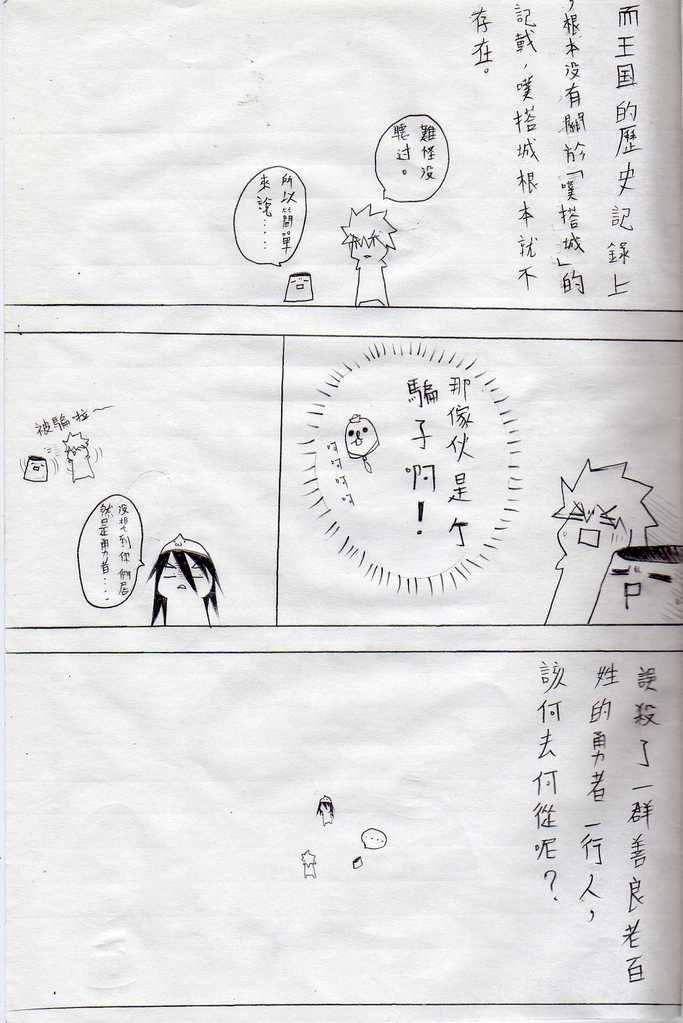 而王国的歷史記錄上
，根本没有關於「噗搭城」的
記載，噗搭城根本就不
存在。
難怪没
聽过。
所以簡單
來說……
那傢伙是个
騙子啊！
呵呵呵呵
被騙啦～
没想到你們居
然是勇者……
誤殺了一群善良老百
姓的勇者一行人，
該何去何從呢？
…